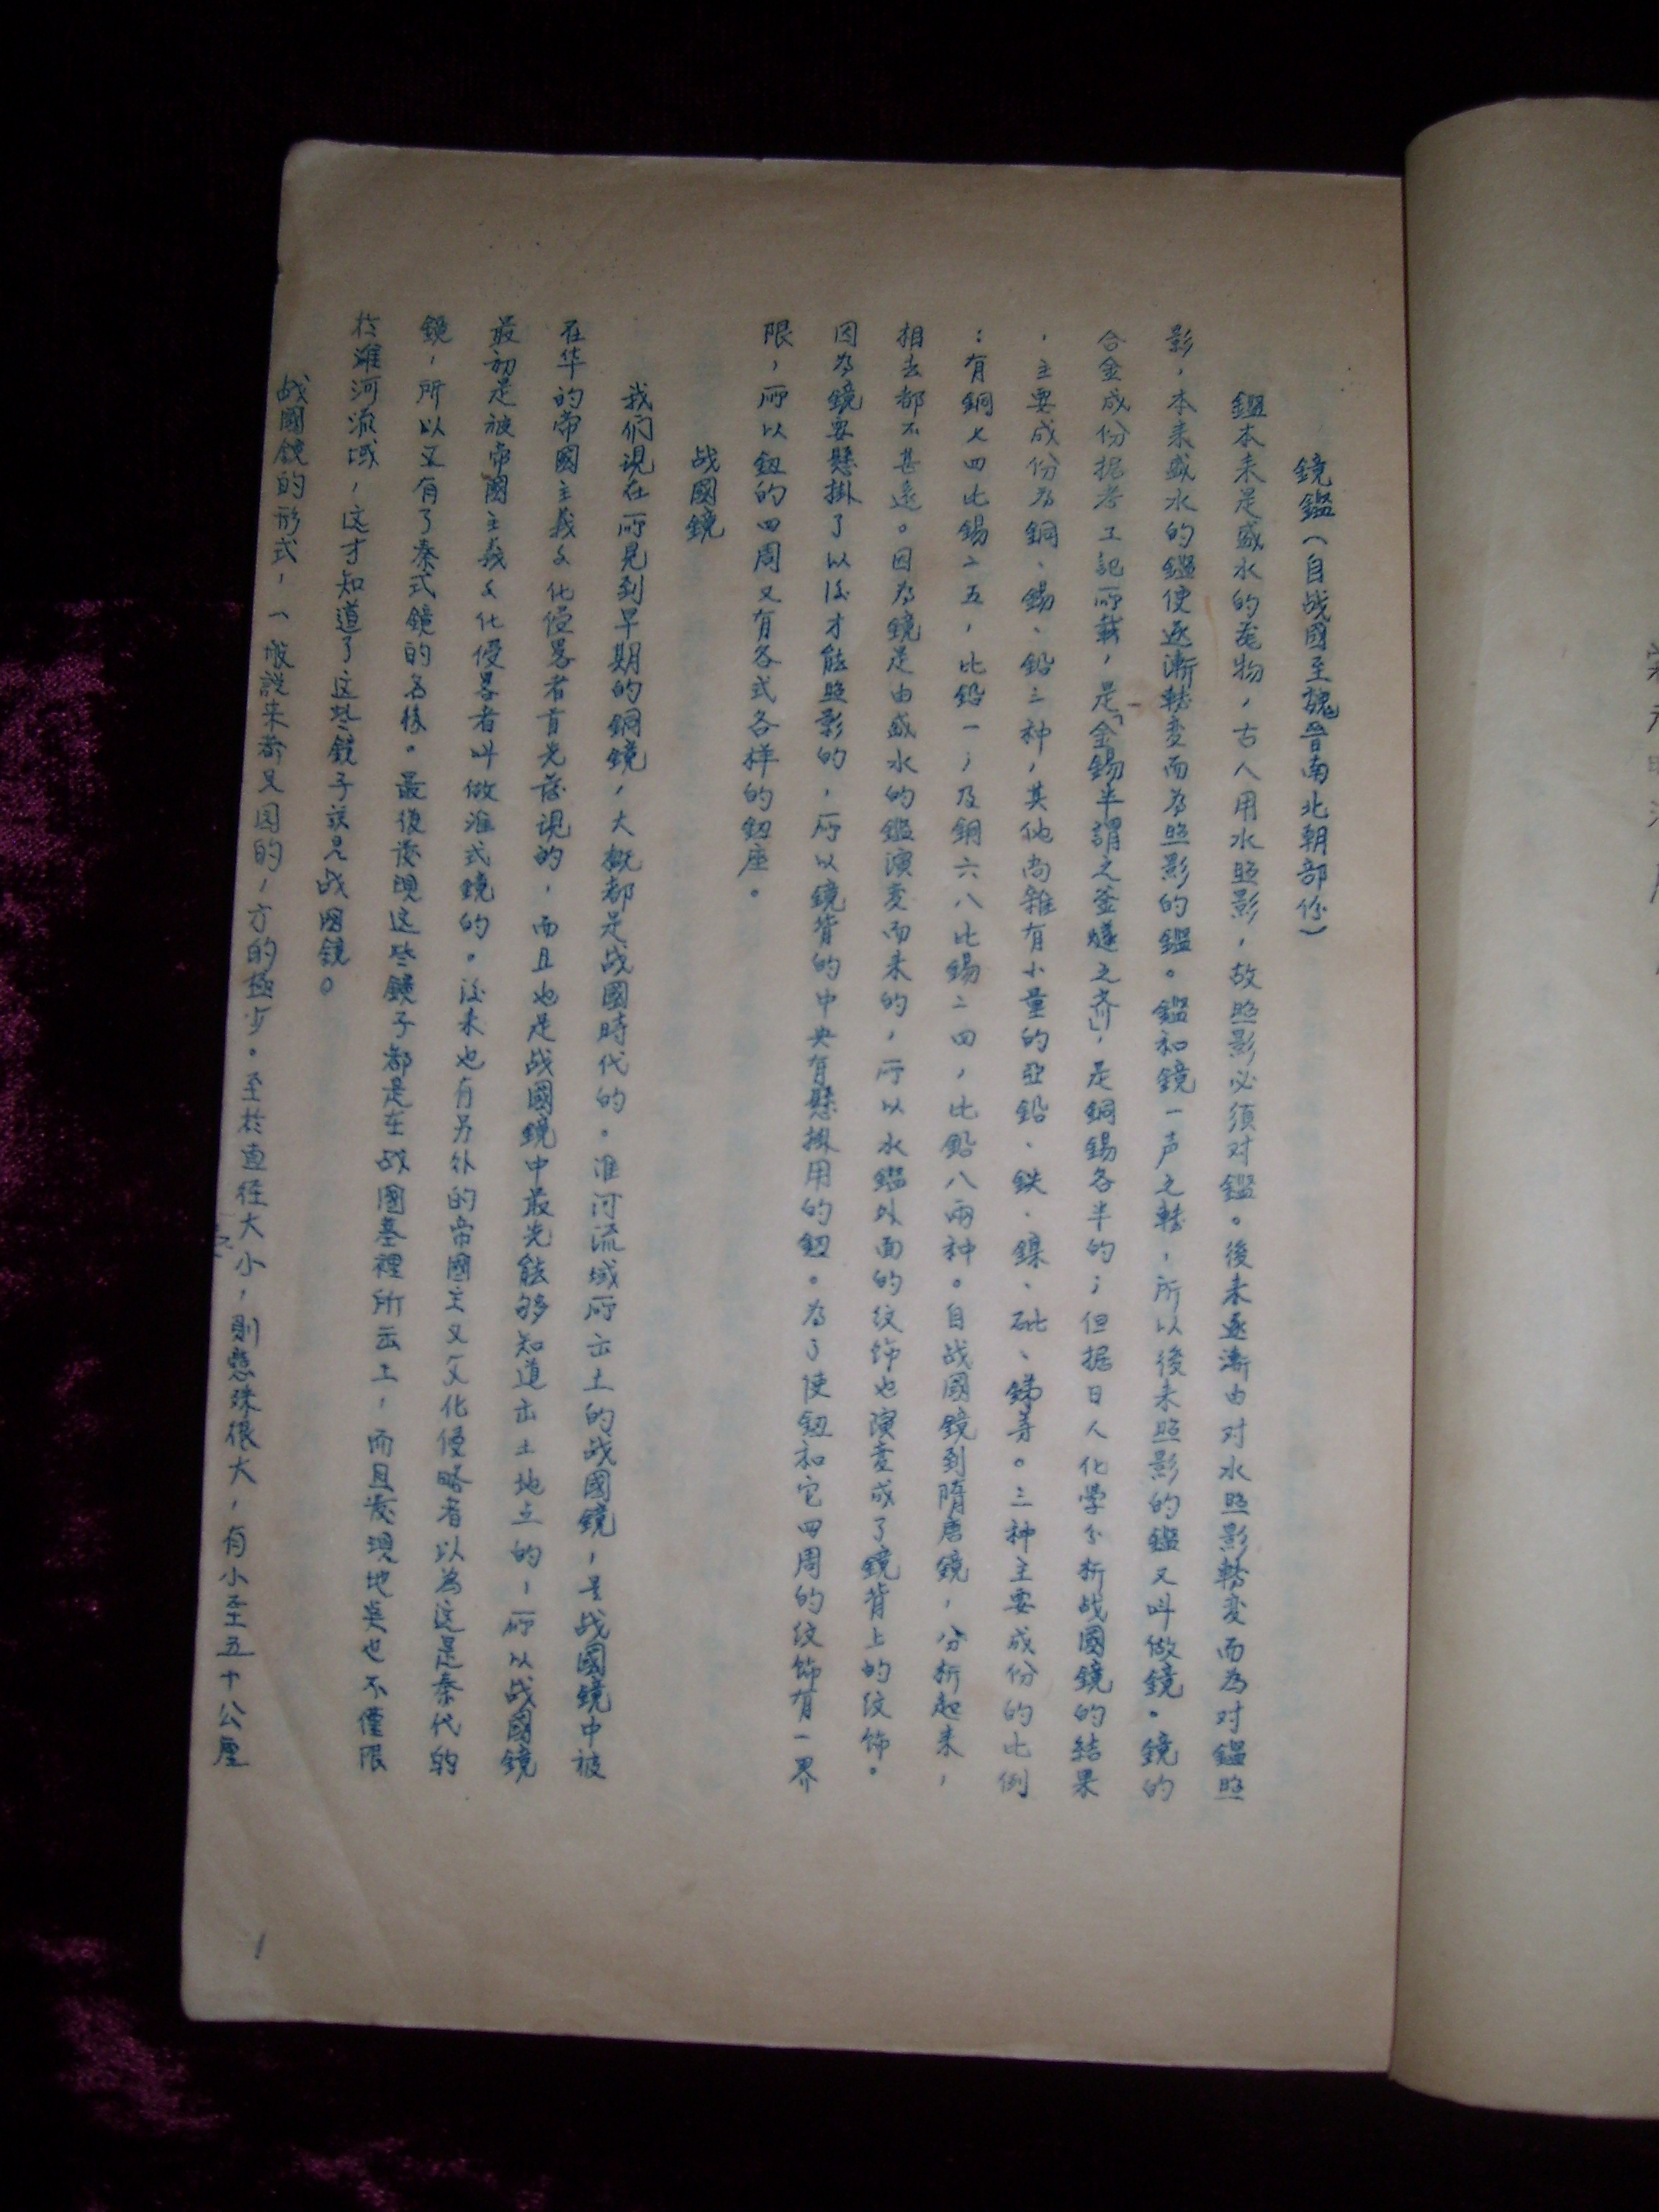 鏡鑑（自战國至魏晉南北朝部份）
鑑本来是盛水的器物，古人用水照影，故照影必須对鑑。後来逐漸由对水照影轉变而為对鑑照
影，本来盛水的鑑使逐漸轉变而為照影的鑑。鑑和鏡一声之轉，所以後来照影的鑑又叫做鏡。鏡的
合金成份据考工記所載，是「金錫半謂之鉴燧之齐」，是銅錫各半的；但据日人化學分析战國鏡的結果
，主要成份為銅、錫、鉛三种，其他尚雜有小量的亞鉛、鉄、鎳、砒、銻等。三种主要成份的比例
：有銅七四比錫二五，比鉛一；及銅六八比錫二四，比鉛八兩种。自战國鏡到隋唐鏡，分析起来，
相去都不甚遠。因為鏡是由盛水的鑑演变而来的，所以水鑑外面的纹饰也演变成了鏡背上的纹饰。
因為鏡要懸掛了以後才能照影的，所以鏡背的中央有懸掛用的鈕。為了使鈕和它四周的纹饰有一界
限，所以鈕的四周又有各式各样的鈕座。
战國鏡
我们現在所見到早期的銅鏡，大概都是战國時代的。淮河流域所出土的战國鏡，是战國鏡中被
在华的帝國主義文化侵畧者首先發現的，而且也是战國鏡中最先能够知道出土地点的，所以战國鏡
最初是被帝國主義文化侵畧者叫做淮式鏡的。後来也有另外的帝國主义文化侵略者以為这是秦代的
鏡，所以又有了秦式鏡的名稱。最後發現这些鏡子都是在战國墓裡所出土，而且發現地点也不僅限
於淮河流域，这才知道了这些鏡子該是战國鏡。
战國鏡的形式，一般説来都是圆的，方的極少。至於直径大小，則懸殊很大，有小至五十公厘
1